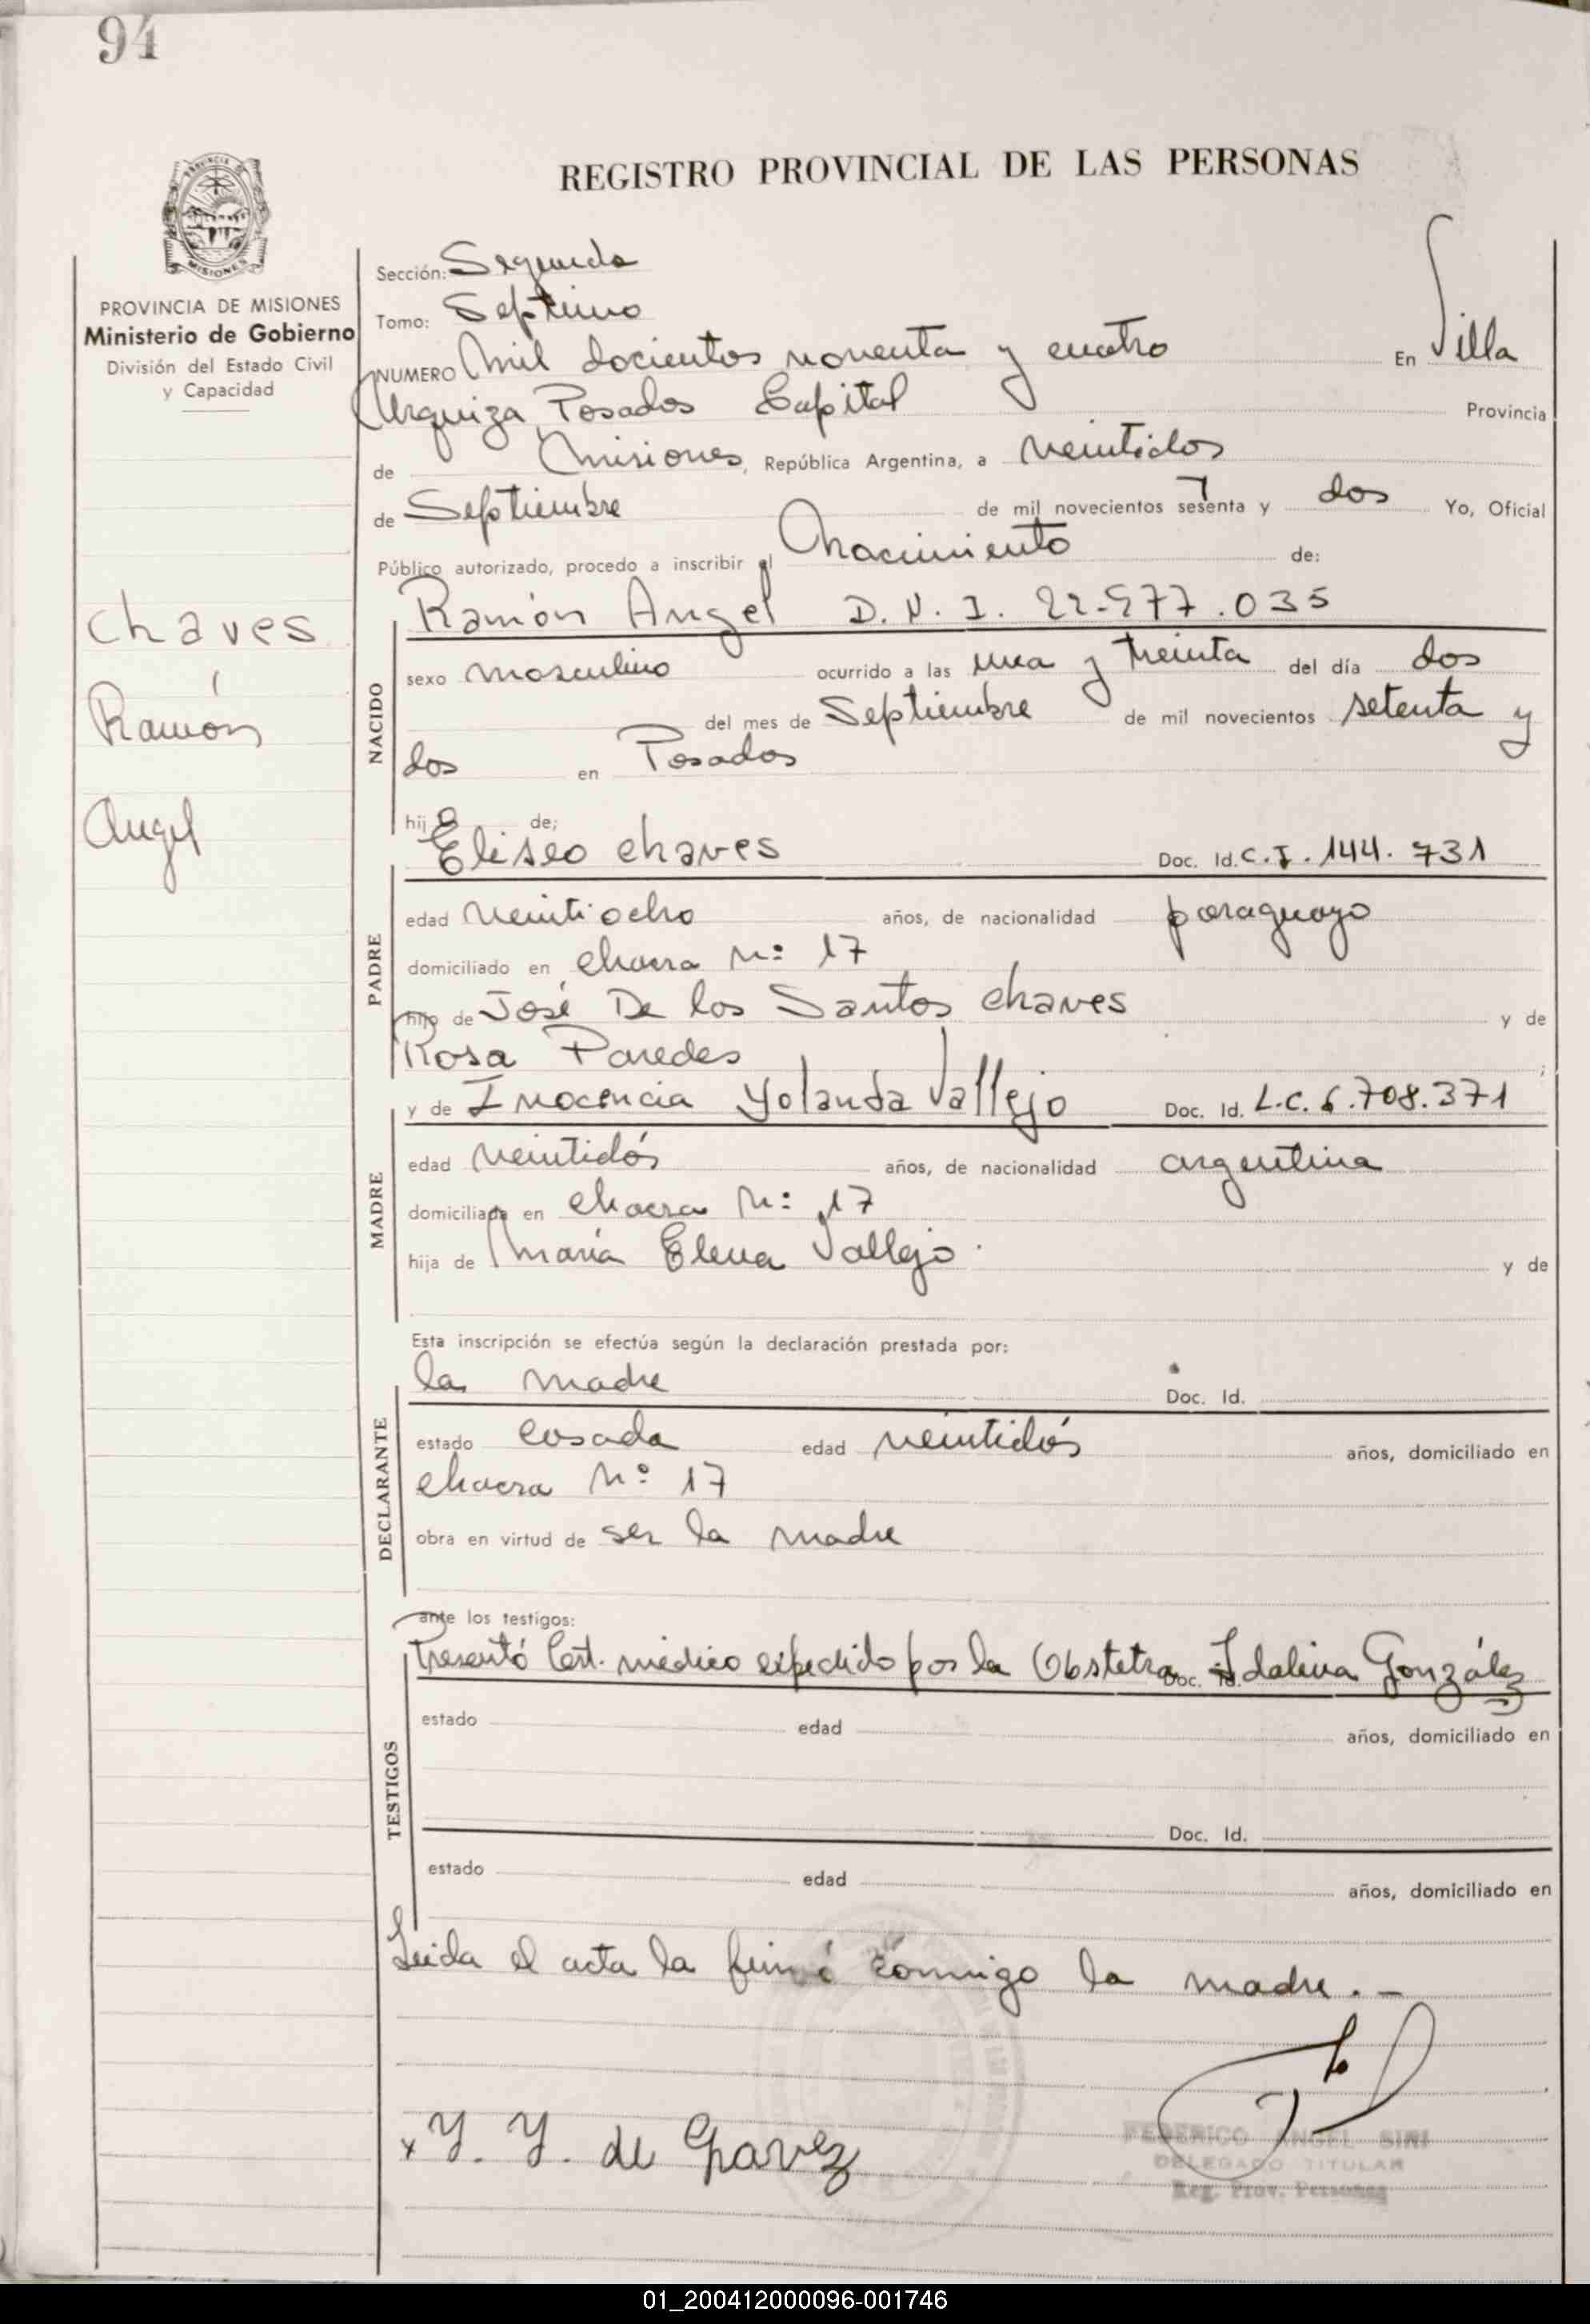 94
REGISTRO PROVINCIAL DE LAS PERSONAS
PROVINCIA DE MISIONES
Ministerio de Gobierno
División del Estado Civil
y Capacidad
Chaves
Ramón
Angel
Sección: Segunda
Tomo: Septimo
NUMERO Mil docientos noventa y cuatro En Villa
Urquiza, Posadas Capital Provincia
de Misiones, República Argentina, a veintidos
de Septiembre de mil novecientos setenta y dos Yo, Oficial
Público autorizado, procedo a inscribir el Nacimiento de:
NACIDO
Ramón Angel D.N.I. 22.977.035
sexo masculino ocurrido a las una y treinta del día dos
del mes de Septiembre de mil novecientos setenta y
dos en Posadas
hijo de;
PADRE
Eliseo Chaves Doc. Id. C.I. 144.731
edad veintiocho años, de nacionalidad paraguayo
domiciliado en chacra Nº: 17
hijo de José De los Santos Chaves y de
Rosa Paredes ;
MADRE
y de Inocencia Yolanda Vallejo Doc. Id. L.C. 6.708.371
edad veintidós años, de nacionalidad argentina
domiciliada en chacra Nº: 17
hija de María Elena Vallejo. y de
Esta inscripción se efectúa según la declaración prestada por:
DECLARANTE
la madre Doc. Id.
estado casada edad veintidós años, domiciliado en
chacra Nº 17
obra en virtud de ser la madre
ante los testigos:
TESTIGOS
Presentó Cert. médico expedido por la Obstetra Doc. Id. Idalina González
estado edad años, domiciliado en
Doc. Id.
estado edad años, domiciliado en
Leida el acta la firmó conmigo la madre.-
x Y. Y. de Chavez
FEDERICO ANGEL SIRI
DELEGADO TITULAR
Reg. Prov. Personas
01_200412000096-001746